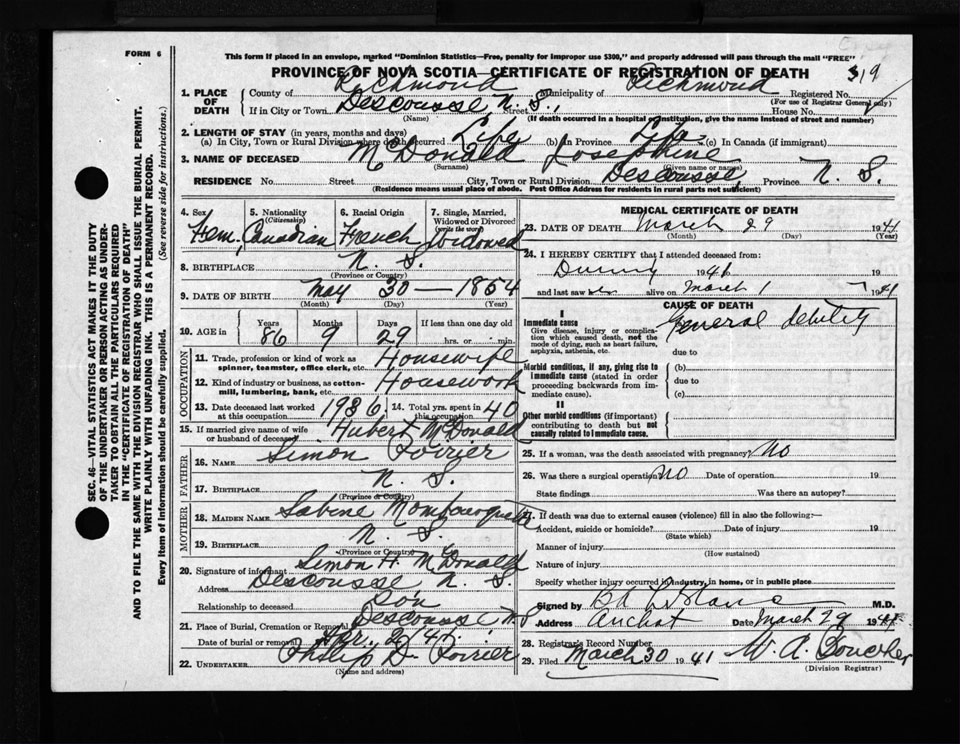 FORM 6
This form if placed in an envelope, marked "Dominion Statistics—Free, penalty for improper use $300," and properly addressed will pass through the mail "FREE"
PROVINCE OF NOVA SCOTIA—CERTIFICATE OF REGISTRATION OF DEATH 319
1. PLACE OF DEATH County of Richmond Municipality of Richmond Registered No.
(For use of Registrar General only)
If in City or Town Descousse, N. S., Street House No.
(Name) (If death occurred in a hospital or institution, give the name instead of street and number)
2. LENGTH OF STAY (in years, months and days)
(a) In City, Town or Rural Division where death occurred Life (b) In Province Life (c) In Canada (if immigrant)
3. NAME OF DECEASED McDonald Josephine
(Surname) (Given name or names)
RESIDENCE No. Street City, Town or Rural Division Descousse, Province N. S.
(Residence means usual place of abode. Post Office Address for residents in rural parts not sufficient)
SEC. 46—VITAL STATISTICS ACT MAKES IT THE DUTY
OF THE UNDERTAKER OR PERSON ACTING AS UNDERTAKER
TO OBTAIN ALL THE PARTICULARS REQUIRED
IN THE "CERTIFICATE OF REGISTRATION OF DEATH"
AND TO FILE THE SAME WITH THE DIVISION REGISTRAR WHO SHALL ISSUE THE BURIAL PERMIT.
WRITE PLAINLY WITH UNFADING INK. THIS IS A PERMANENT RECORD.
Every item of information should be carefully supplied. (See reverse side for instructions.)
4. Sex 5. Nationality (Citizenship) 6. Racial Origin 7. Single, Married, Widowed or Divorced (write the word)
Fem, Canadian French Widowed
8. BIRTHPLACE N. S.
(Province or Country)
9. DATE OF BIRTH May 30 — 1854
(Month) (Day) (Year)
10. AGE in Years Months Days If less than one day old
86 9 29 hrs. or min.
OCCUPATION
11. Trade, profession or kind of work as spinner, teamster, office clerk, etc. Housewife
12. Kind of industry or business, as cotton-mill, lumbering, bank, etc. Housework
13. Date deceased last worked at this occupation 1936 14. Total yrs. spent in this occupation 40
15. If married give name of wife or husband of deceased Hubert McDonald
FATHER
16. NAME Simon Poirier
17. BIRTHPLACE N. S.
(Province or Country)
MOTHER
18. MAIDEN NAME Sabine Mombourquette
19. BIRTHPLACE N. S.
(Province or Country)
20. Signature of informant Simon H. McDonald
Address Descousse N. S.
Relationship to deceased Son
21. Place of Burial, Cremation or Removal Descousse N S
Date of burial or removal Apr., 2/41.
22. UNDERTAKER Philip D. Poirier
(Name and address)
MEDICAL CERTIFICATE OF DEATH
23. DATE OF DEATH March 29 1941
(Month) (Day) (Year)
24. I HEREBY CERTIFY that I attended deceased from:
During 1941 19
and last saw alive on March 1 1941
CAUSE OF DEATH
I
Immediate cause General debility
Give disease, injury or complication which caused death, not the mode of dying, such as heart failure, asphyxia, asthenia, etc.
due to
Morbid conditions, if any, giving rise to immediate cause (stated in order proceeding backwards from immediate cause). (b)
due to
(c)
II
Other morbid conditions (if important) contributing to death but not causally related to immediate cause.
25. If a woman, was the death associated with pregnancy? No
26. Was there a surgical operation? No Date of operation 19
State findings Was there an autopsy?
27. If death was due to external causes (violence) fill in also the following:—
Accident, suicide or homicide? Date of injury 19
(State which)
Manner of injury
(How sustained)
Nature of injury
Specify whether injury occurred in industry, in home, or in public place
Signed by M.D.
Address Arichat Date March 29 1941
28. Registrar's Record Number
29. Filed March 30 1941 W. A. Boucher
(Division Registrar)